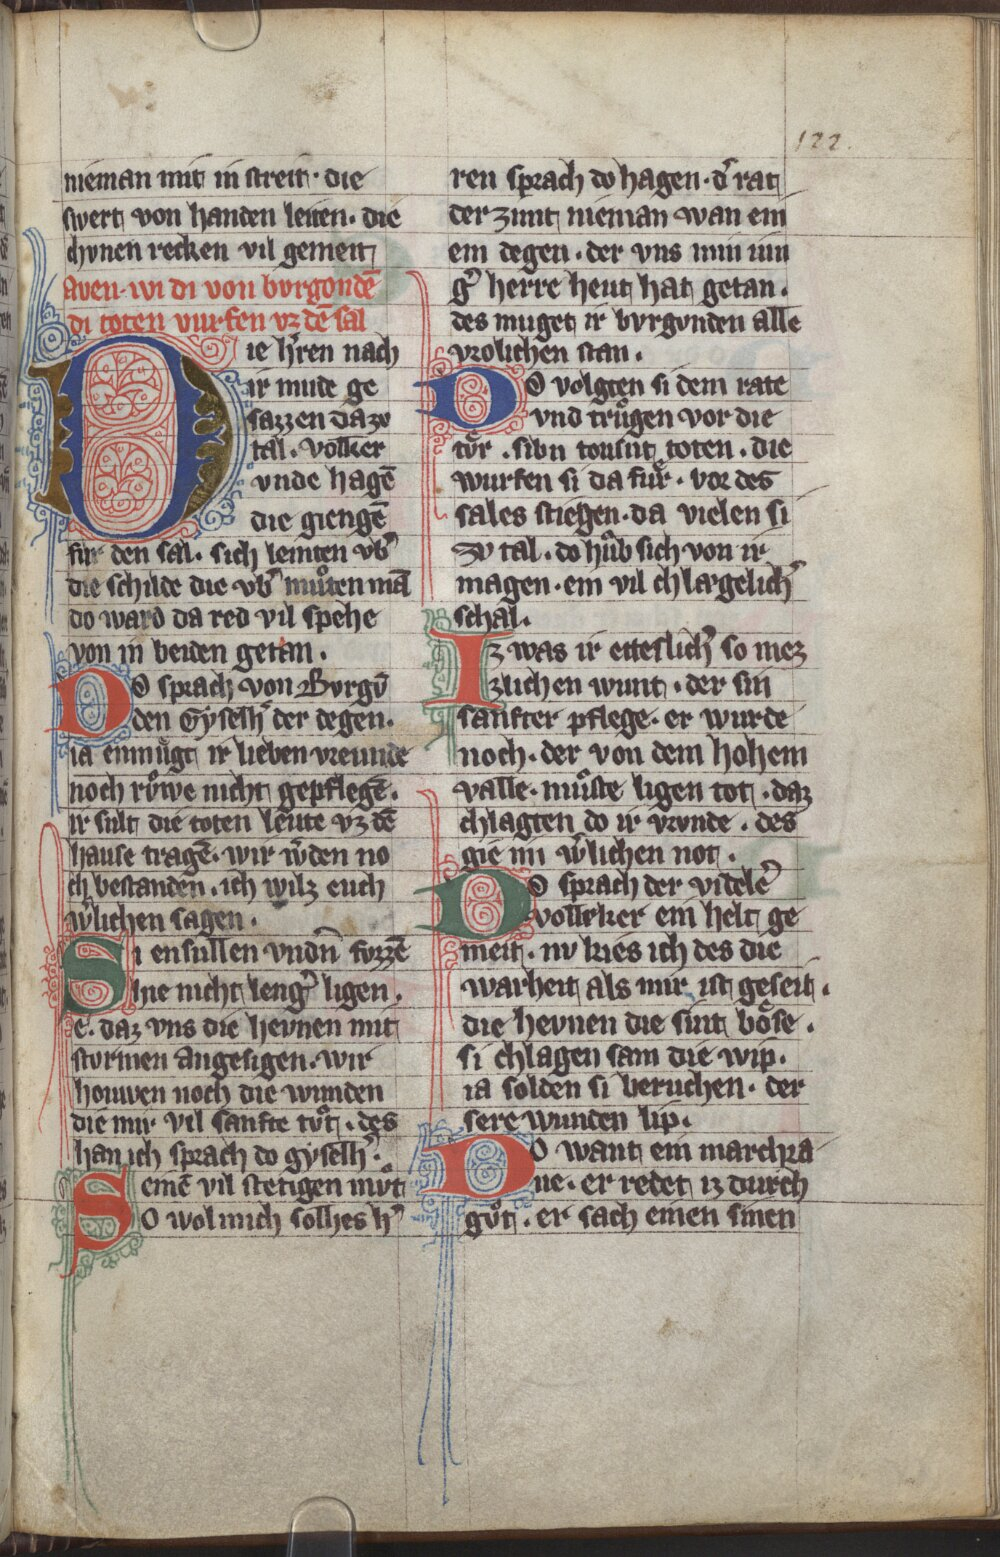 122.
nieman mit in streit· die
swert von handen leiten· die
chvnen recken vil gemeit
Aven· wi di von bvrgondē
di toten vurfen vz dē sal
Die h̓ren nach
ir mude ge
sazzen dazv
tal· volker
vnde hagē
die giengē
fur den sal· sich leinten vb̓
die schilde die vb̓ muͦten mā
do ward da red vil spehe
von in beiden getan·
Do sprach von Bvrgv̄
den Gyselh̓ der degen·
ia enmuͤgt ir lieben vreunde
noch rv̊we nicht gepflegē·
ir sult die toten leute vz dē
hause tragē· wir w̓den no
ch bestanden· ich wilz euch
w̓lichen sagen·
Si ensullen vndn̄ fvzzē
hie nicht leng̓ ligen·
e· daz vns die hevnen mit
sturmen angesigen· wir
houwen noch die wunden
die mir vil sanfte tuͦt· des
han ich sprach do gyselh̓·
einē vil stetigen mvͦt
So wol mich solhes h̓
ren sprach do hagen· d̓ rat
der zimt nieman wan ein
em degen· der vns min iun
g̓ herre heut hat getan·
des muget ir bvrgvnden alle
vrolichen stan·
Do volgten si dem rate
vnd truͦgen vor die
tuͤr· sibn tousint toten· die
wurfen si da fuͤr· vor des
sales stiegen· da vielen si
zv tal· do huͦb sich von ir
magen· ein vil chlægelich̓
schal·
Iz was ir etteslich̓ so mez
zlichen wunt· der sin
sanfter pflege· er wurde
noch· der von dem hohem
valle· muͦste ligen tot· daz
chlagten do ir vrvnde· des
gie im w̓lichen not·
Do sprach der videlē̓
volleker ein helt ge
meit· nv kies ich des die
warheit als mir ist geseit·
die hevnen die sint boͤse·
si chlagen sam die wip·
ia solden si beruchen· der
sere wunden lip·
Do want ein marchra
ue· er redet iz durch
guͦt· er sach einen sinen